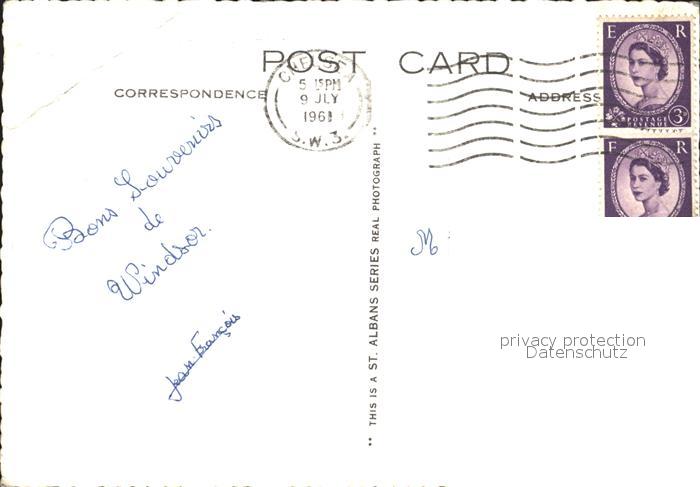 POST CARD
CORRESPONDENCE
ADDRESS
CHELSEA
5 15PM
9 JLY
1961
S.W.3.
E R
POSTAGE
REVENUE
3D
E R
Bons Souvenirs
de
Windsor.
Jean-François
** THIS IS A ST. ALBANS SERIES REAL PHOTOGRAPH **
M
privacy protection
Datenschutz